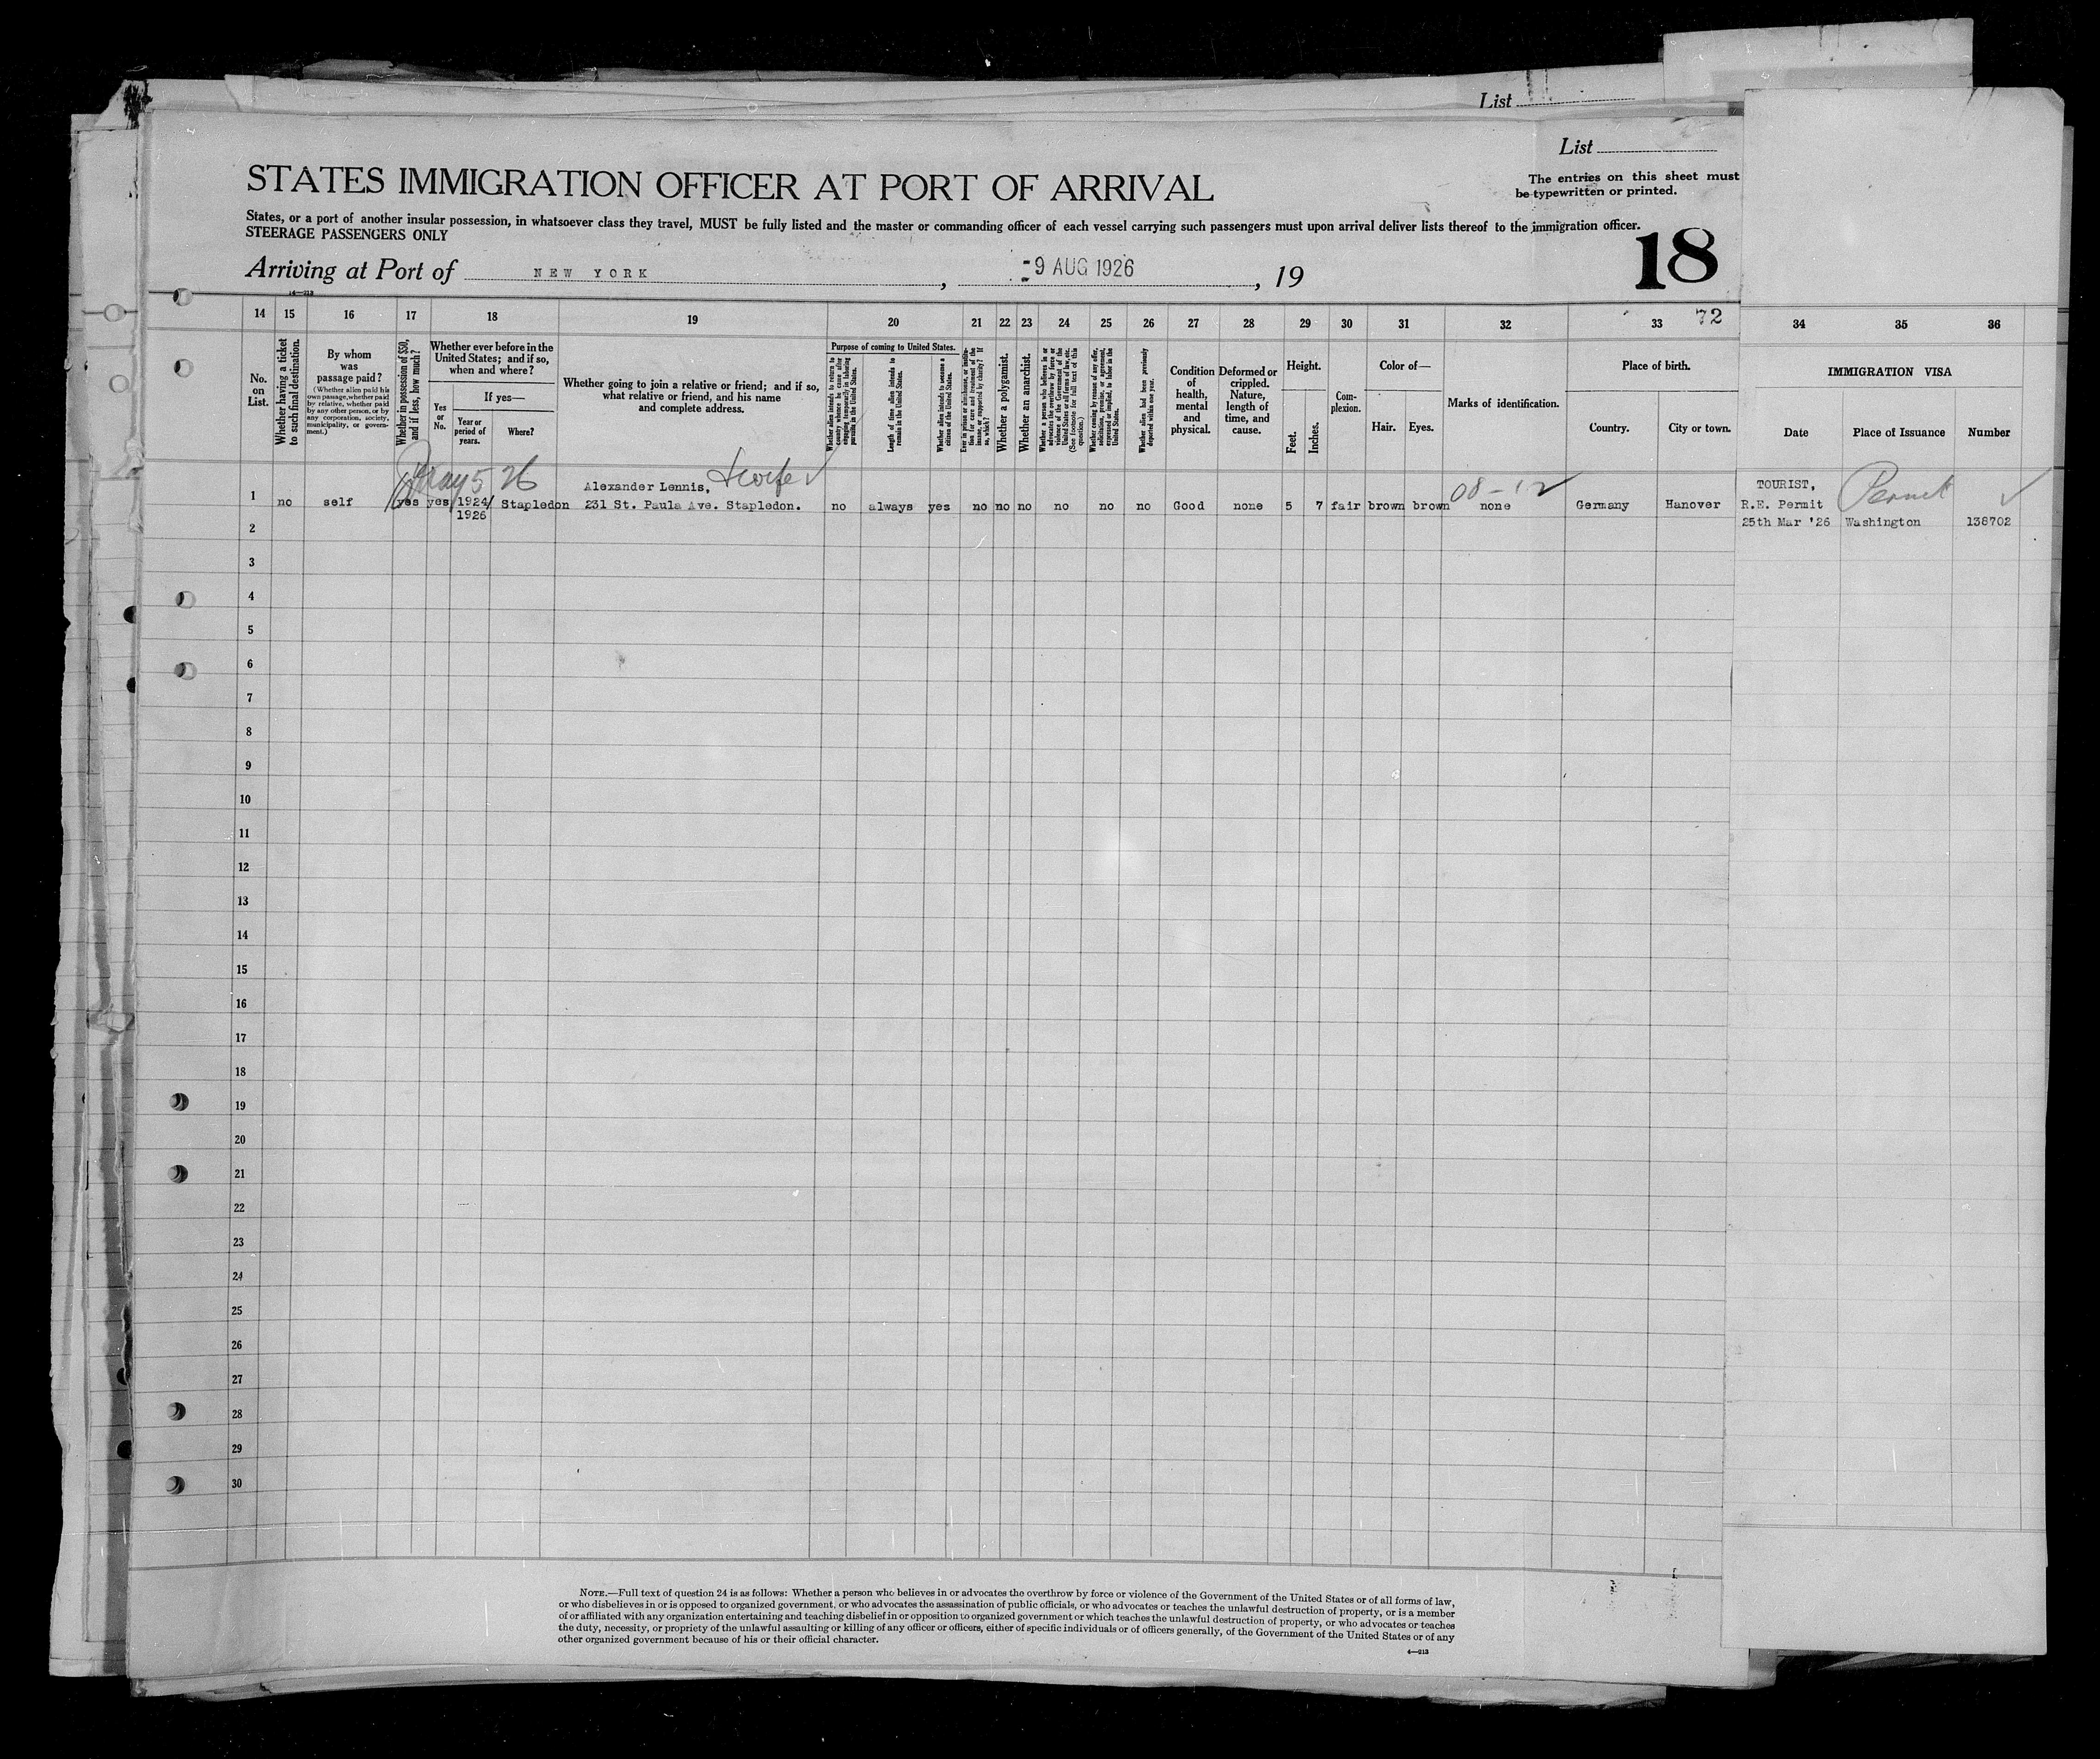 List
List
The entries on this sheet must
be typewritten or printed.
STATES IMMIGRATION OFFICER AT PORT OF ARRIVAL
States, or a port of another insular possession, in whatsoever class they travel, MUST be fully listed and the master or commanding officer of each vessel carrying such passengers must upon arrival deliver lists thereof to the immigration officer.
STEERAGE PASSENGERS ONLY
18
Arriving at Port of NEW YORK, -9 AUG 1926, 19
14 15 16 17 18 19 20 21 22 23 24 25 26 27 28 29 30 31 32 33 72 34 35 36
No. on List.
Whether having a ticket to such final destination.
By whom was passage paid?
(Whether alien paid his own passage, whether paid by relative, whether paid by any other person, or by any corporation, society, municipality, or government.)
Whether in possession of $50, and if less, how much?
Whether ever before in the United States; and if so, when and where?
Yes or No.
If yes—
Year or period of years.
Where?
Whether going to join a relative or friend; and if so, what relative or friend, and his name and complete address.
Purpose of coming to United States.
Whether alien intends to return to country whence he came after engaging temporarily in laboring pursuits in the United States.
Length of time alien intends to remain in the United States.
Whether alien intends to become a citizen of the United States.
Ever in prison or almshouse, or institution for care and treatment of the insane, or supported by charity? If so, which?
Whether a polygamist.
Whether an anarchist.
Whether a person who believes in or advocates the overthrow by force or violence of the Government of the United States or all forms of law, etc. (See footnote for full text of this question.)
Whether coming by reason of any offer, solicitation, promise, or agreement, expressed or implied, to labor in the United States.
Whether alien had been previously deported within one year.
Condition of health, mental and physical.
Deformed or crippled. Nature, length of time, and cause.
Height.
Feet.
Inches.
Complexion.
Color of—
Hair. Eyes.
Marks of identification.
Place of birth.
Country. City or town.
IMMIGRATION VISA
Date Place of Issuance Number
May 5 26
Alexander Lennis,
08-12
TOURIST,
Permit
1 no self yes yes 1924/ Stapledon 231 St. Paula Ave. Stapledon. no always yes no no no no no no Good none 5 7 fair brown brown none Germany Hanover R.E. Permit
1926
25th Mar '26 Washington 138702
2
3
4
5
6
7
8
9
10
11
12
13
14
15
16
17
18
19
20
21
22
23
24
25
26
27
28
29
30
NOTE.—Full text of question 24 is as follows: Whether a person who believes in or advocates the overthrow by force or violence of the Government of the United States or of all forms of law,
or who disbelieves in or is opposed to organized government, or who advocates the assassination of public officials, or who advocates or teaches the unlawful destruction of property, or is a member
of or affiliated with any organization entertaining and teaching disbelief in or opposition to organized government or which teaches the unlawful destruction of property, or who advocates or teaches
the duty, necessity, or propriety of the unlawful assaulting or killing of any officer or officers, either of specific individuals or of officers generally, of the Government of the United States or of any
other organized government because of his or their official character.